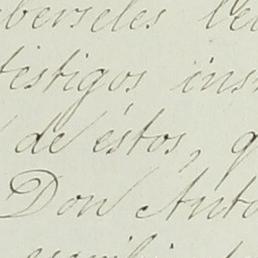 berseles le
testigos ins
de éstos, q
Don Anto